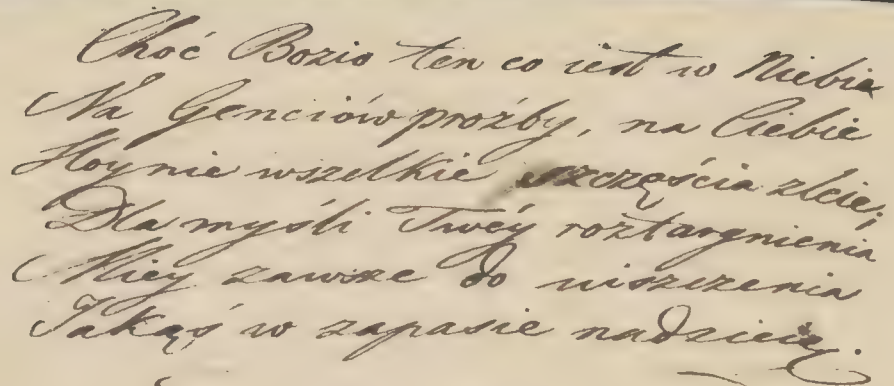 Choć Bozio ten co iest w Niebie
Na Genciów proźby, na Ciebie
Hoynie wszelkie szczęścia zleie;
Dla myśli Twéy roztargnienia
Miey zawsze do uiszczenia
Jakąś w zapasie nadzieię.